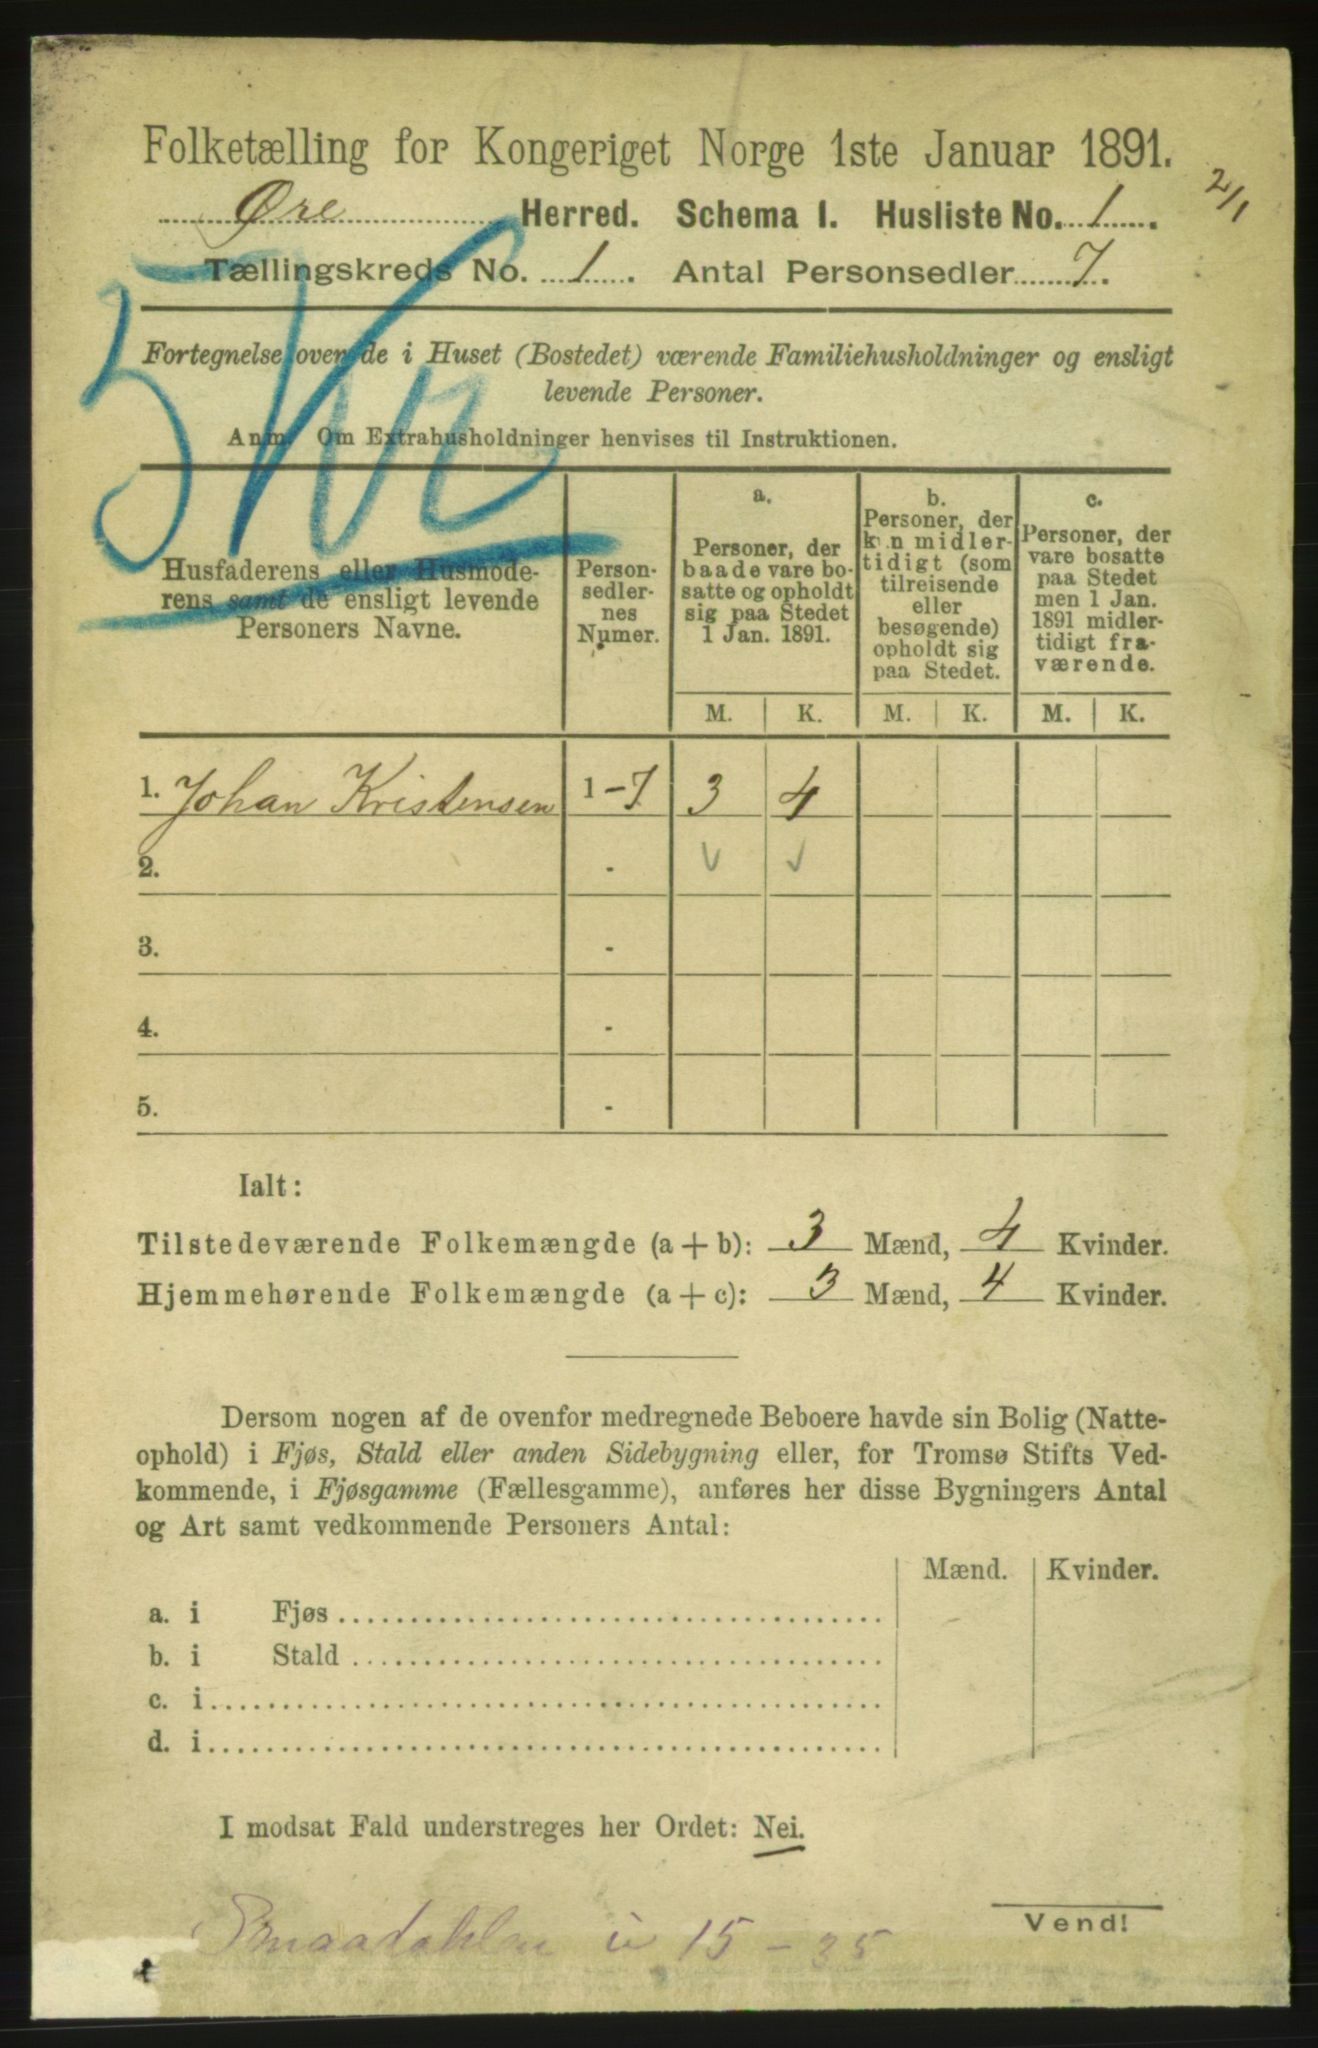 Folketælling for Kongeriget Norge 1ste Januar 1891.
2/1
Øre Herred. Schema 1. Husliste No. 1.
Tællingskreds No. 1. Antal Personsedler 7.
Fortegnelse over de i Huset (Bostedet) værende Familiehusholdninger og ensligt
levende Personer.
Anm. Om Extrahusholdninger henvises til Instruktionen.
Husfaderens eller Husmode-
rens samt de ensligt levende
Personers Navne.
Person-
sedler-
nes
Numer.
a.
Personer, der
baade vare bo-
satte og opholdt
sig paa Stedet
1 Jan. 1891.
b.
Personer, der
kun midler-
tidigt (som
tilreisende
eller
besøgende)
opholdt sig
paa Stedet.
c.
Personer, der
vare bosatte
paa Stedet
men 1 Jan.
1891 midler-
tidigt fra-
værende.
M. K. M. K. M. K.
1. Johan Kristensen 1-7 3 4
2. -
3. -
4. -
5. -
Ialt:
Tilstedeværende Folkemængde (a + b): 3 Mænd, 4 Kvinder.
Hjemmehørende Folkemængde (a + c): 3 Mænd, 4 Kvinder.
Dersom nogen af de ovenfor medregnede Beboere havde sin Bolig (Natte-
ophold) i Fjøs, Stald eller anden Sidebygning eller, for Tromsø Stifts Ved-
kommende, i Fjøsgamme (Fællesgamme), anføres her disse Bygningers Antal
og Art samt vedkommende Personers Antal:
Mænd. Kvinder.
a. i Fjøs
b. i Stald
c. i
d. i
I modsat Fald understreges her Ordet: Nei.
Vend!
15 - 35